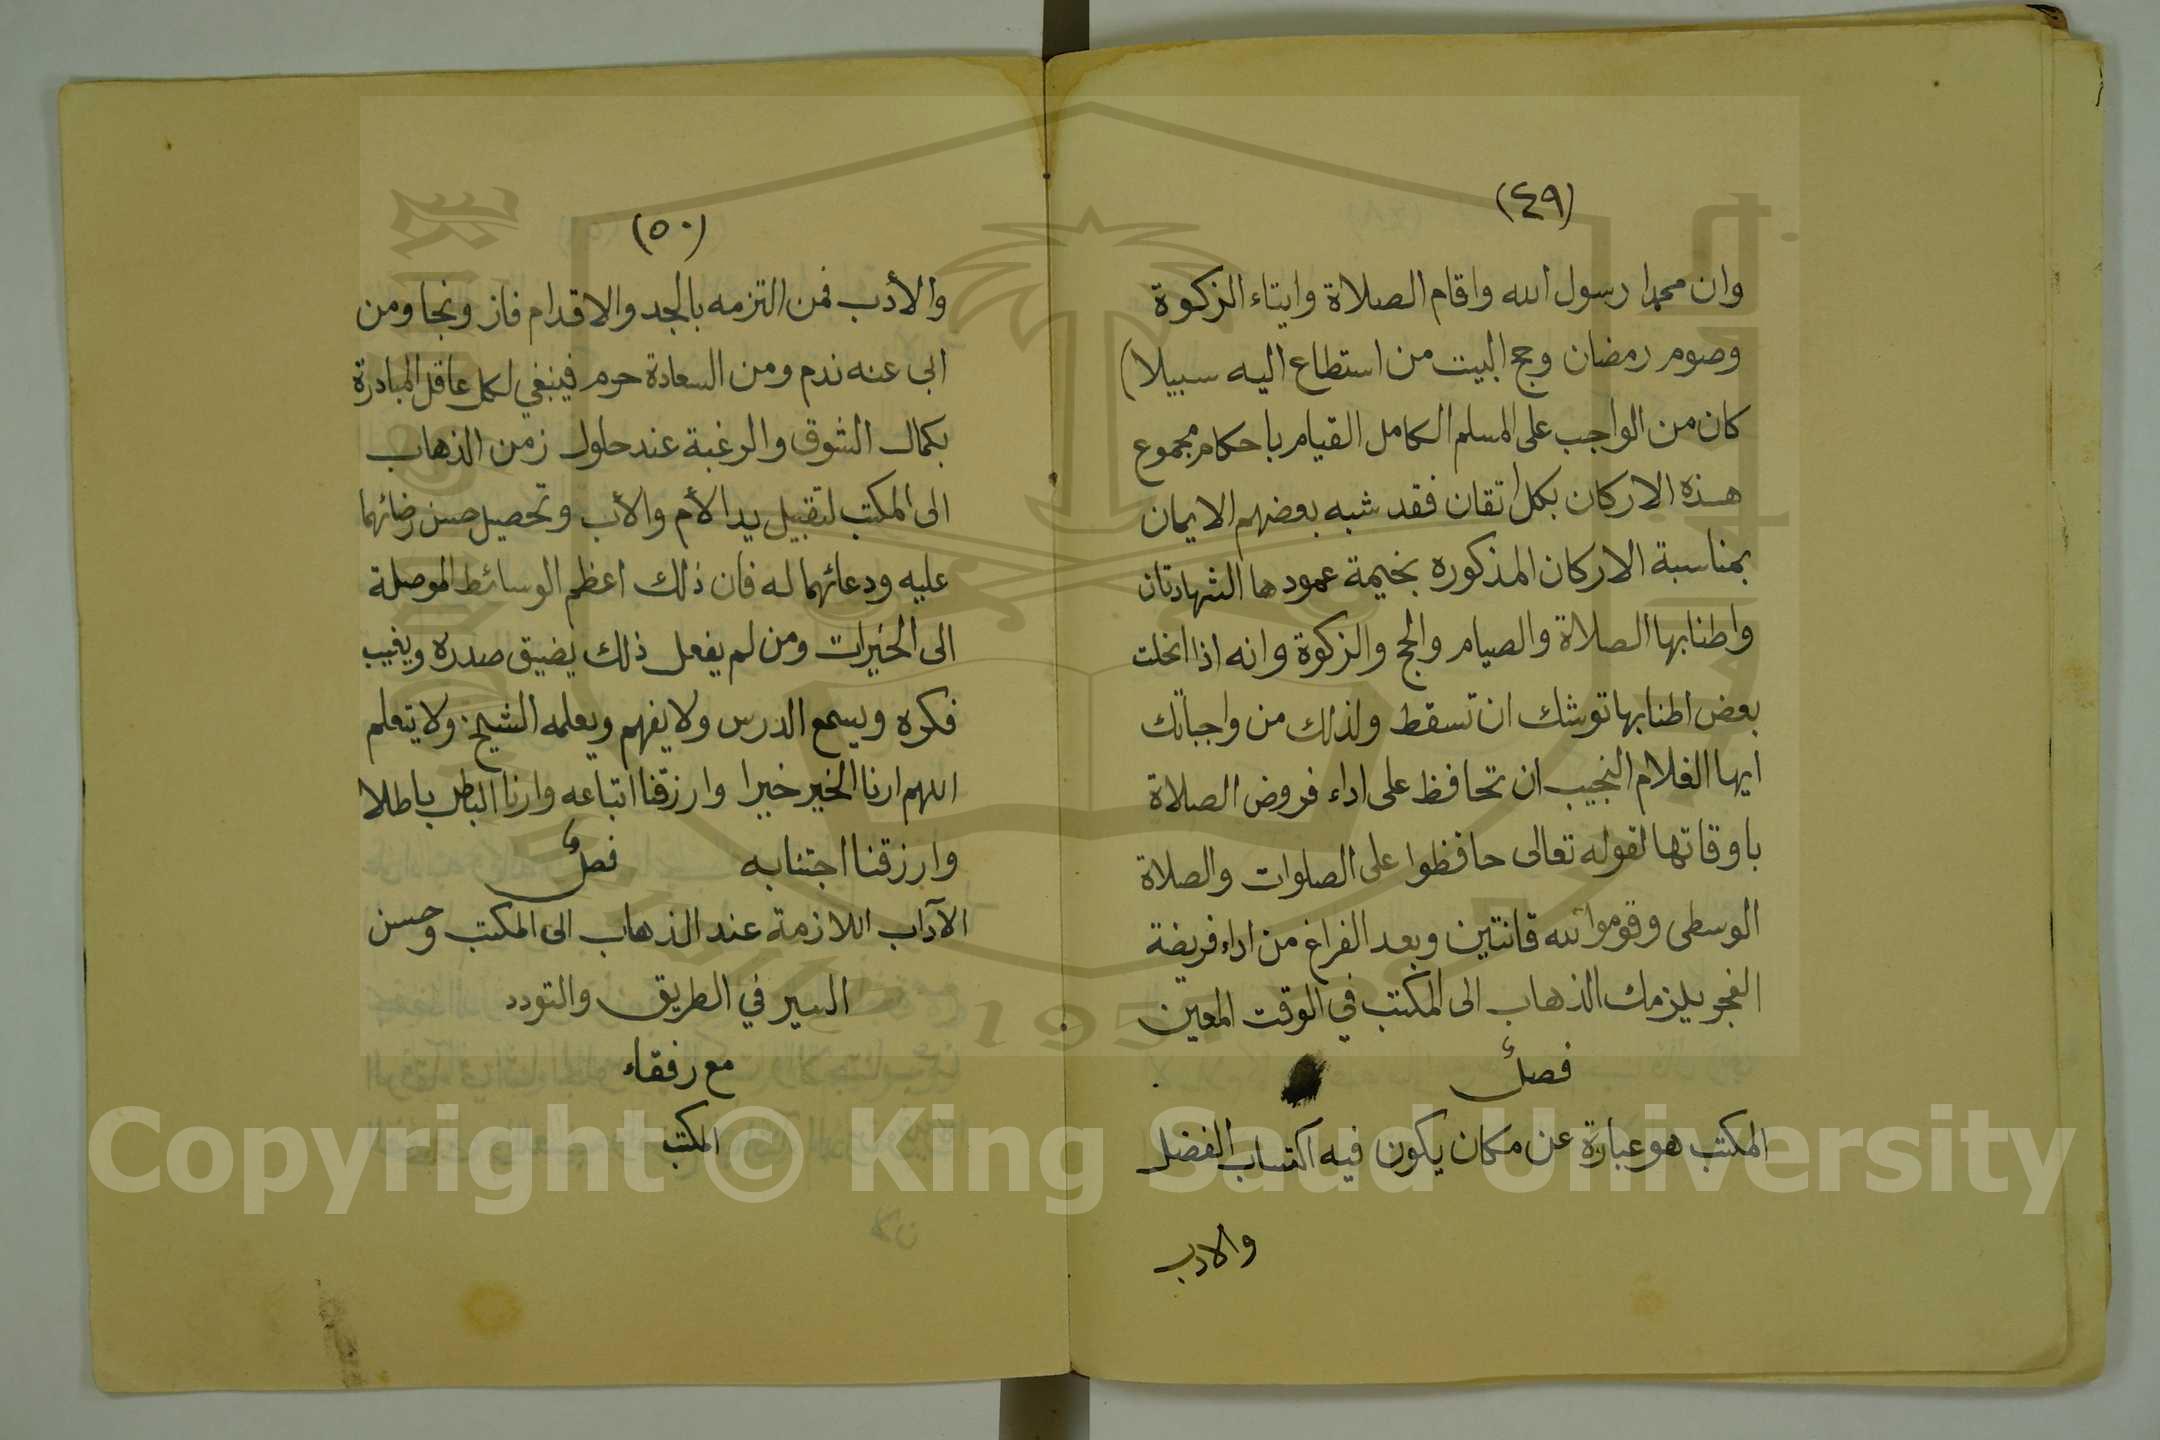 (٤٩)
وان محمدا رسول الله واقام الصلاة وايتاء الزكوة
وصوم رمضان وحج البيت من استطاع اليه سبيلا)
كان من الواجب على المسلم الكامل القيام باحكام مجموع
هذه الاركان بكل اتقان فقد شبه بعضهم الايمان
بمناسبة الاركان المذكوره بخيمة عمودها الشهادتان
واطنابها الصلاة والصيام والحج والزكوة وانه اذا انحلت
بعض اطنابها توشك ان تسقط ولذلك من واجباتك
ايها الغلام النجيب ان تحافظ على اداء فروض الصلاة
باوقاتها لقوله تعالى حافظوا على الصلوات والصلاة
الوسطى وقوموا لله قانتين وبعد الفراغ من اداء فريضة
الفجر يلزمك الذهاب الى المكتب في الوقت المعين
فصل
المكتب هو عبارة عن مكان يكون فيه اكتساب الفضل
والادب
(٥٠)
والأدب فمن التزمه بالجد والاقدام فاز ونجا ومن
ابى عنه ندم ومن السعادة حرم فينبغي لكل عاقل المبادرة
بكمال الشوق والرغبة عند حلول زمن الذهاب
الى المكتب لتقبيل يد الأم والأب وتحصيل حسن رضائهما
عليه ودعائهما له فان ذلك اعظم الوسائط الموصلة
الى الخيرات ومن لم يفعل ذلك يضيق صدره ويغيب
فكره ويسمع الدرس ولا يفهم ويعلمه الشيخ ولا يتعلم
اللهم ارنا الخير خيرا وارزقنا اتباعه وارنا الباطل باطلا
وارزقنا اجتنابه فصل
الآداب اللازمة عند الذهاب الى المكتب وحسن
السير في الطريق والتودد
مع رفقاء
المكتب
Copyright © King Saud University